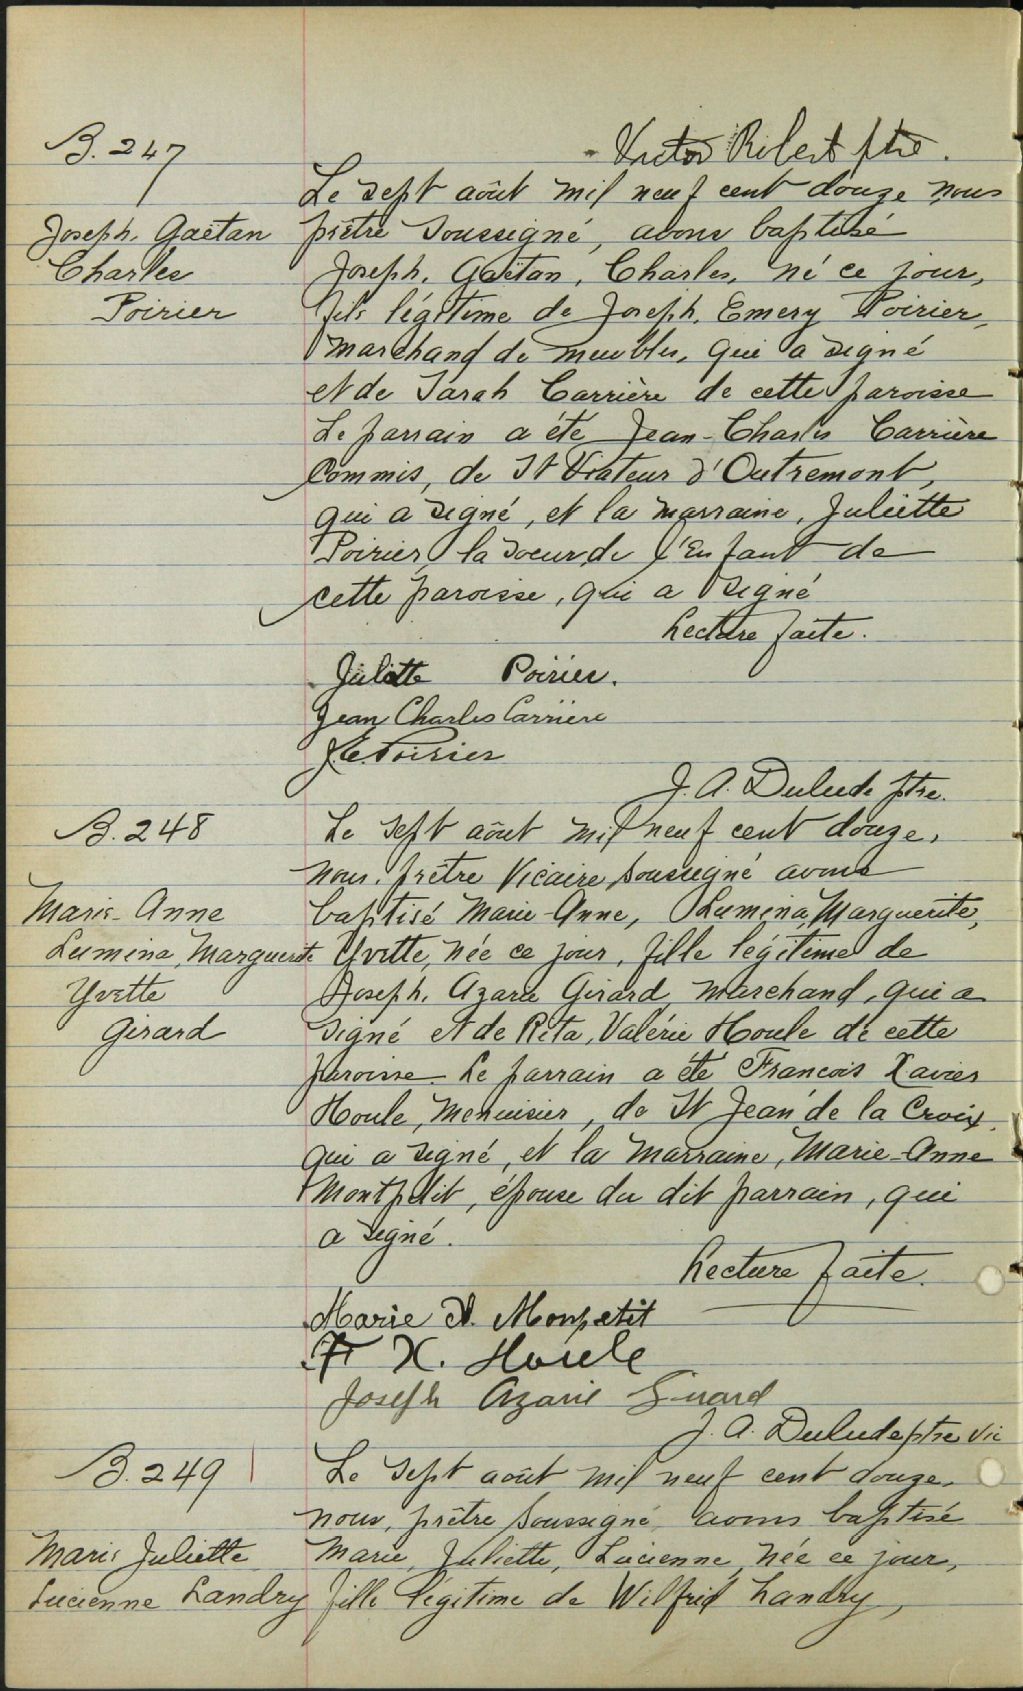 Victor Ribert ptre.
B. 247
Joseph, Gaëtan
Charles
Poirier
Le sept août mil neuf cent douze nous
prêtre soussigné, avons baptisé
Joseph, Gaëtan, Charles, né ce jour,
fils légitime de Joseph, Emery Poirier,
marchand de meubles, qui a signé
et de Sarah Carrière de cette paroisse
Le parrain a été Jean-Charles Carrière
Commis, de St Viateur d'Outremont,
qui a signé, et la marraine, Juliette
Poirier, la soeur de l'Enfant de
cette paroisse, qui a signé
Lecture faite.
Juliette Poirier.
Jean Charles Carrière
J. E. Poirier
J. A. Dulude ptre.
B. 248
Marie-Anne
Lumina, Marguerite
Yvette
Girard
Le sept août mil neuf cent douze,
nous, prêtre Vicaire soussigné avons
baptisé Marie-Anne, Lumina, Marguerite,
Yvette, née ce jour, fille légitime de
Joseph, Azarie Girard, marchand, qui a
signé et de Rita, Valérie Houle de cette
paroisse. Le parrain a été Francois Xavier
Houle, menuisier, de St Jean de la Croix,
qui a signé, et la marraine, Marie-Anne
Montpetit, épouse du dit parrain, qui
a signé.
Lecture faite.
Marie A. Monpetit
F X. Houle
Joseph Azarie Girard
J. A. Dulude ptre vic
B. 249
Marie Juliette
Lucienne Landry
Le sept août mil neuf cent douze,
nous, prêtre soussigné avons baptisé
Marie, Juliette, Lucienne, née ce jour,
fille légitime de Wilfrid Landry,